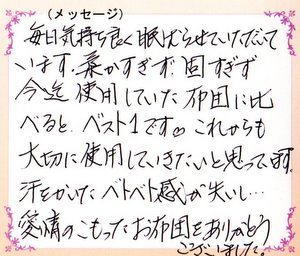 (メッセージ)
毎日気持ち良く眠らせていただいて
います。柔かすぎず、固すぎず
今迄使用していた布団に比
べると、ベスト1です。これからも
大切に使用していきたいと思ってます。
汗をかいたベトベト感が失いし…
愛情のこもったお布団をありがとう
ございました。